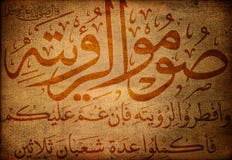 صوموا لرؤيته
وافطروا لرؤيته فان غم عليكم
فاكملوا عدة شعبان ثلاثين